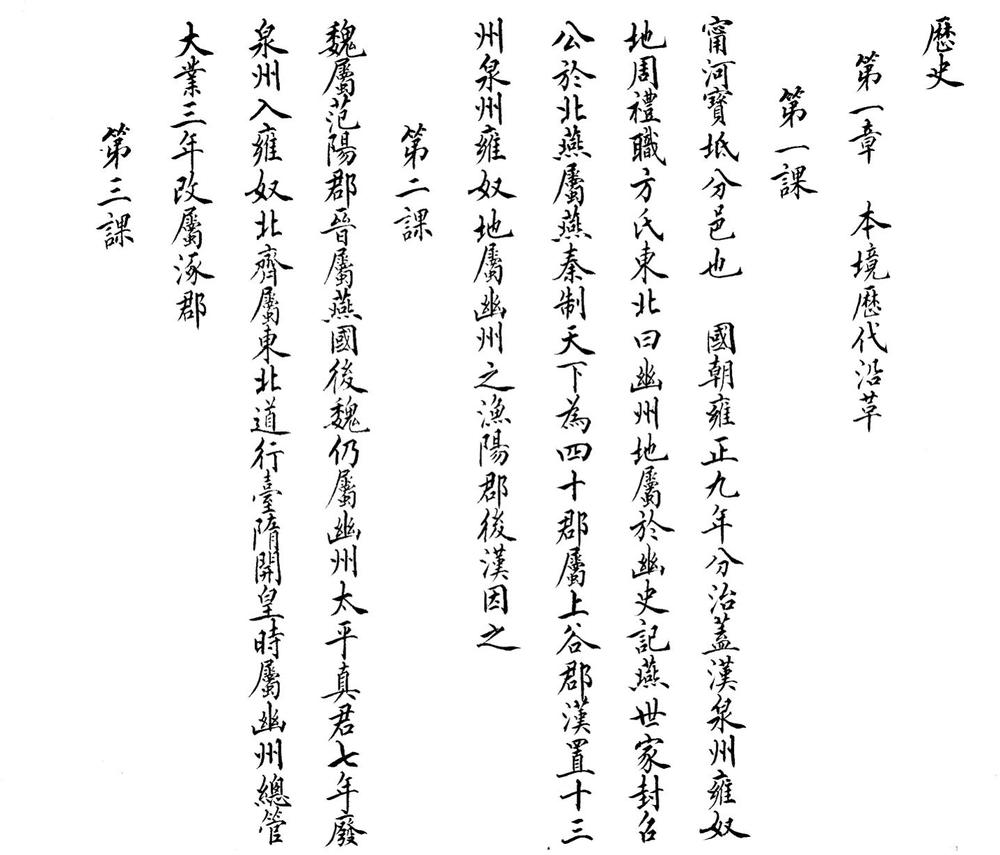 歷史
第一章 本境歷代沿革
第一課
甯河寶坻分邑也 國朝雍正九年分治蓋漢泉州雍奴
地周禮職方氏東北曰幽州地屬於幽史記燕世家封召
公於北燕屬燕秦制天下為四十郡屬上谷郡漢置十三
州泉州雍奴地屬幽州之漁陽郡後漢因之
第二課
魏屬范陽郡晉屬燕國後魏仍屬幽州太平真君七年廢
泉州入雍奴北齊屬東北道行臺隋開皇時屬幽州總管
大業三年改屬涿郡
第三課